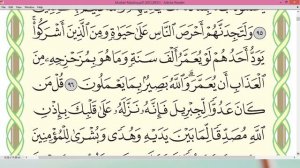 ٩٥ وَلَتَجِدَنَّهُمْ أَحْرَصَ ٱلنَّاسِ عَلَىٰ حَيَوٰةٍ وَمِنَ ٱلَّذِينَ أَشْرَكُوا۟ۚ
يَوَدُّ أَحَدُهُمْ لَوْ يُعَمَّرُ أَلْفَ سَنَةٍ وَمَا هُوَ بِمُزَحْزِحِهِۦ مِنَ
ٱلْعَذَابِ أَن يُعَمَّرَۗ وَٱللَّهُ بَصِيرٌۢ بِمَا يَعْمَلُونَ ٩٦ قُلْ مَن
كَانَ عَدُوًّا لِّجِبْرِيلَ فَإِنَّهُۥ نَزَّلَهُۥ عَلَىٰ قَلْبِكَ بِإِذْنِ
ٱللَّهِ مُصَدِّقًا لِّمَا بَيْنَ يَدَيْهِ وَهُدًى وَبُشْرَىٰ لِلْمُؤْمِنِينَ